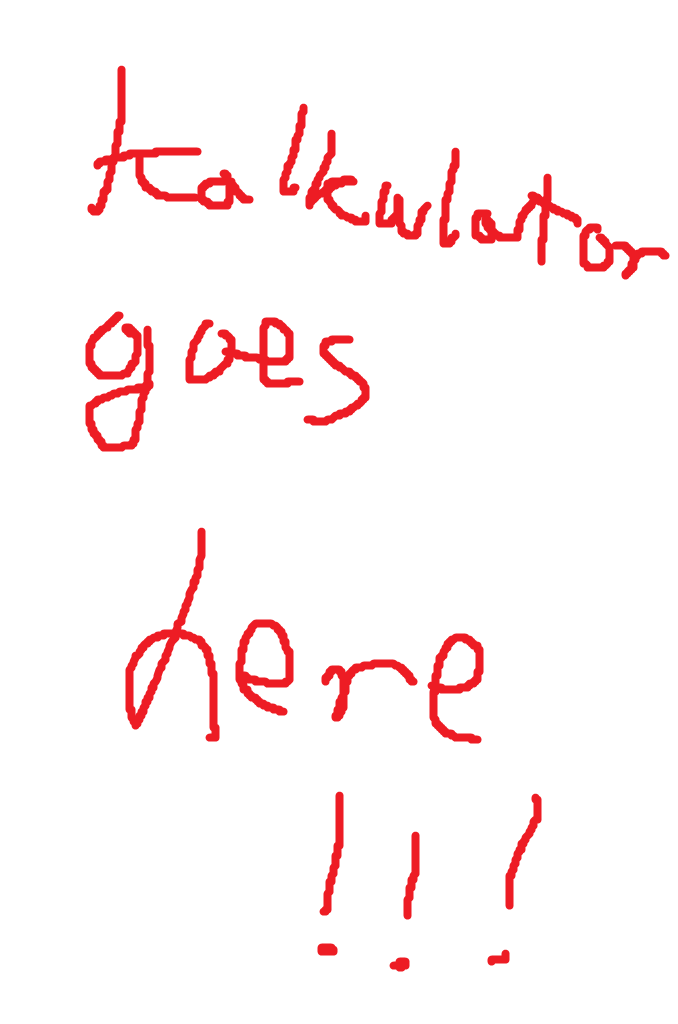 kalkulator
goes
here
!!!